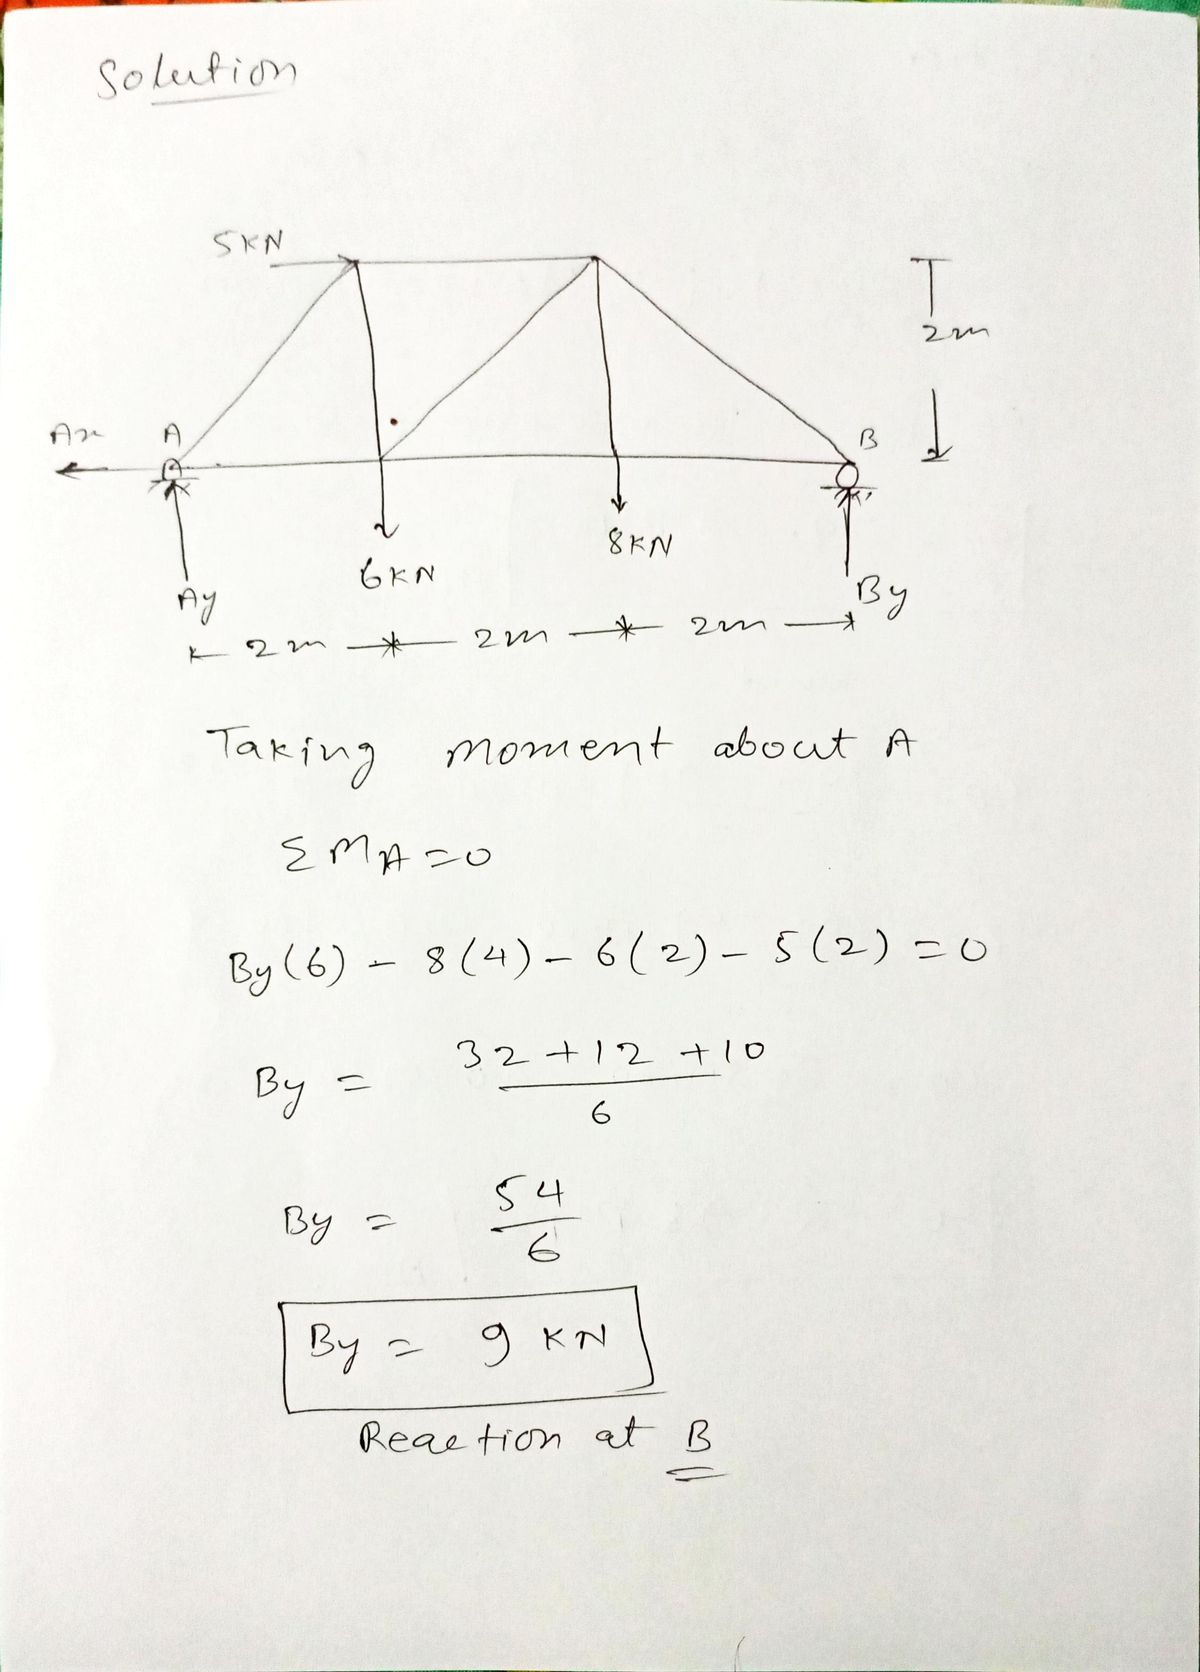 Solution
5KN
2m
Ax A B
6KN 8KN
Ay By
2m 2m 2m
Taking moment about A
ΣMA=0
By(6) - 8(4) - 6(2) - 5(2) = 0
By = 32 + 12 + 10
6
By = 54
6
By = 9 KN
Reaction at B